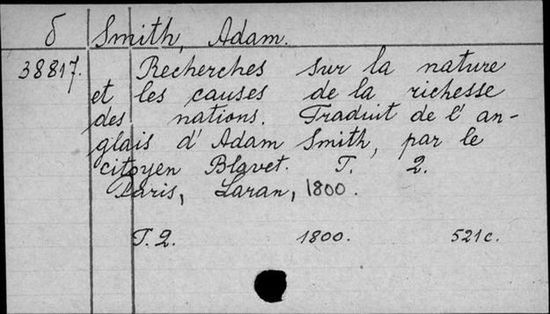 б Smith, Adam.
38817. Recherches sur la nature
et les causes de la richesse
des nations. Traduit de l'an-
glais d'Adam Smith, par le
citoyen Blavet. T. 2.
Paris, Laran, 1800.
T. 2. 1800. 521 c.